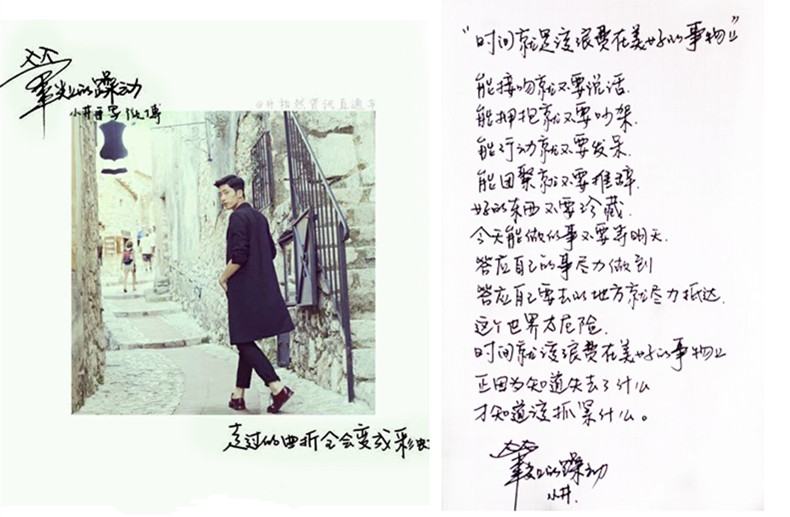 笔尖上的躁动
小井手写微博
@井柏然资讯直通车
走过的曲折全会变成彩虹
“时间就是该浪费在美好的事物上”
能接吻就不要说话.
能拥抱就不要吵架.
能行动就不要发呆.
能团聚就不要推辞.
好的东西不要珍藏.
今天能做的事不要弄明天.
答应自己的事尽力做到
答应自己要去的地方就尽力抵达.
这个世界太危险.
时间就该浪费在美好的事物上
正因为知道失去了什么
才知道该抓紧什么。
笔尖上的躁动
小井.